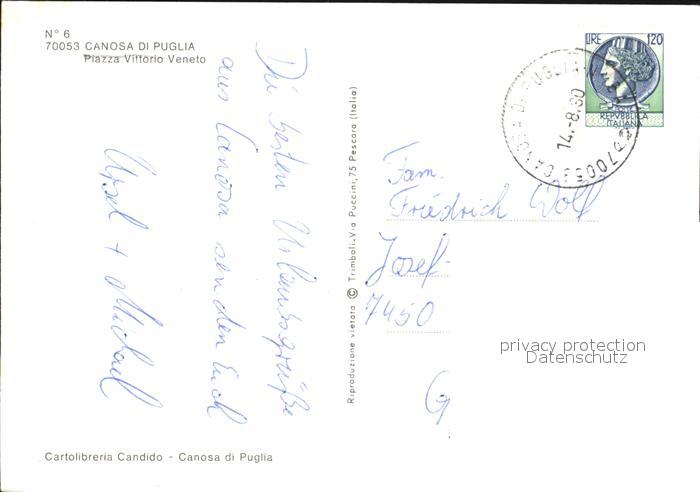 N° 6
70053 CANOSA DI PUGLIA
Piazza Vittorio Veneto
Die besten Urlaubsgrüße
aus Canosa senden Euch
Ursel + Michael
Riproduzione vietata © Trimboli-Via Puccini, 75 Pescara (Italia)
LIRE 120
REPVBBLICA
ITALIANA
70053 CANOSA DI PUGLIA
14.-8.80
Fam.
Friedrich Wolf
Josef-
7450
privacy protection
Datenschutz
Cartolibreria Candido - Canosa di Puglia